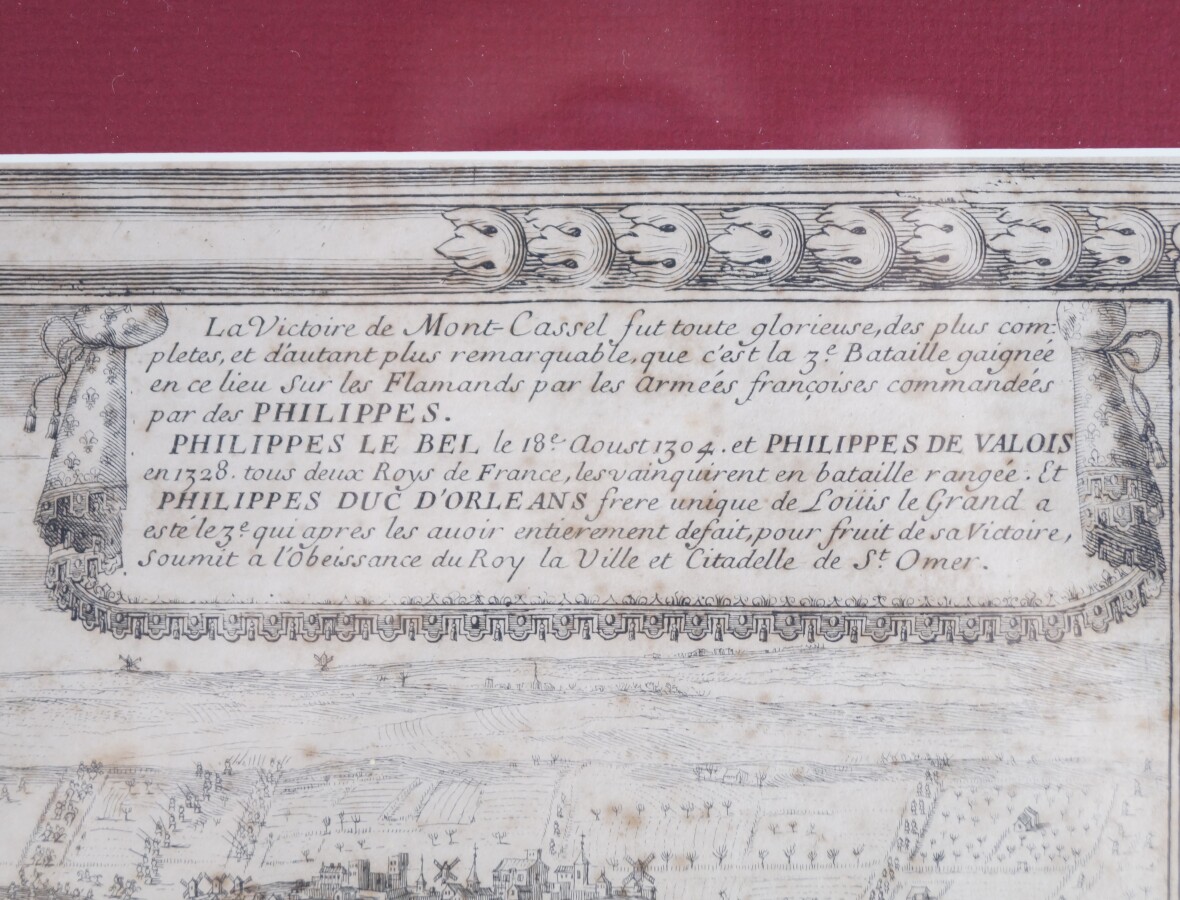 La Victoire de Mont-Cassel fut toute glorieuse, des plus com-
pletes, et d'autant plus remarquable, que c'est la 3e Bataille gaignée
en ce lieu Sur les Flamands par les Armeés françoises commandeés
par des PHILIPPES.
PHILIPPES LE BEL le 18e Aoust 1304. et PHILIPPES DE VALOIS
en 1328. tous deux Roys de France, les vainquirent en bataille rangeé. Et
PHILIPPES DUC D'ORLEANS frere unique de Loüis le Grand a
esté le 3e qui apres les auoir entierement defait, pour fruit de sa Victoire,
Soumit a l'Obeissance du Roy la Ville et Citadelle de St Omer.